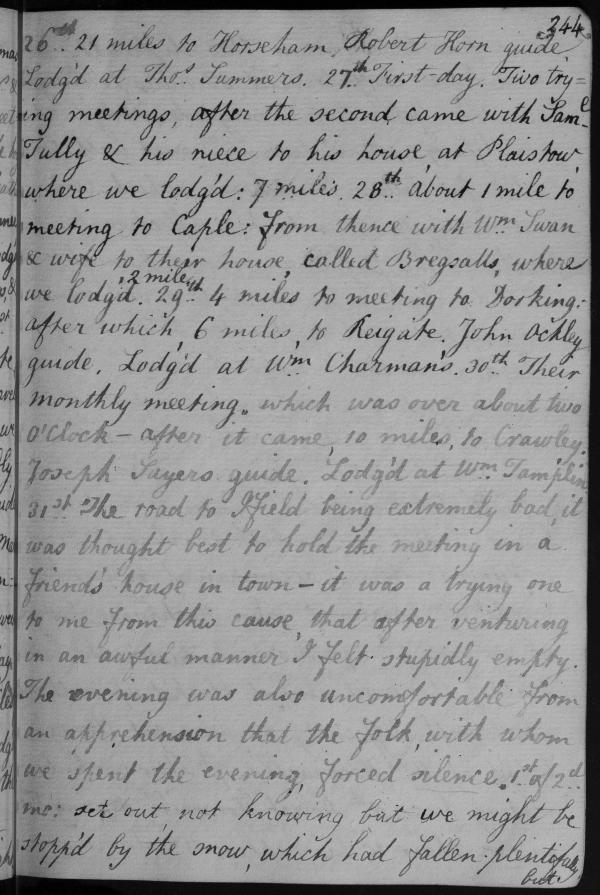 244.
26th.. 21 miles to Horseham, Robert Horn guide
Lodg'd at Thos. Summers. 27th First-day. Two try=
ing meetings, after the second, came with Saml.
Tully & his niece to his house, at Plaistow
where we lodg'd: 7 miles. 28th about 1 mile to
meeting to Caple: from thence with Wm Swan
& wife to their house, called Bregsalls, where
2 miles
we lodg'd. 29th 4 miles to meeting to Dorking:-
after which, 6 miles, to Reigate. John Ockley
guide. Lodg'd at Wm Charman's. 30th Their
monthly meeting,, which was over about two
O'Clock - after it came, 10 miles, to Crawley.
Joseph Sayers guide. Lodg'd at Wm Tamplin
31st The road to Ifield being extremely bad, it
was thought best to hold the meeting in a
friend's house in town - it was a trying one
to me from this cause, that after venturing
in an awful manner I felt stupidly empty.
The evening was also uncomfortable from
an apprehension that the folk, with whom
we spent the evening, forced silence. 1st of 2d
mo: set out not knowing but we might be
stopp'd by the snow, which had fallen plentifully
but